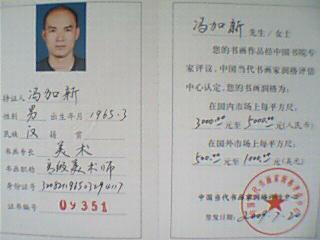 持证人 冯加新
性别 男 出生年月 1965.3
民族 汉 籍贯
书画专长 美术
书画职称 高级美术师
身份证号
证书编号 09351
冯加新 先生/女士
您的书画作品经中国书院专
家评议,中国当代书画家润格评估
中心认定,您的书画润格为:
在国内市场上每平方尺:
3000.00 元至 5000.00 元(人民币)
在国外市场上每平方尺:
500.00 元至 1000.00 元(美元)
中国当代书画家润格评估中心
签发日期:2009.7.20